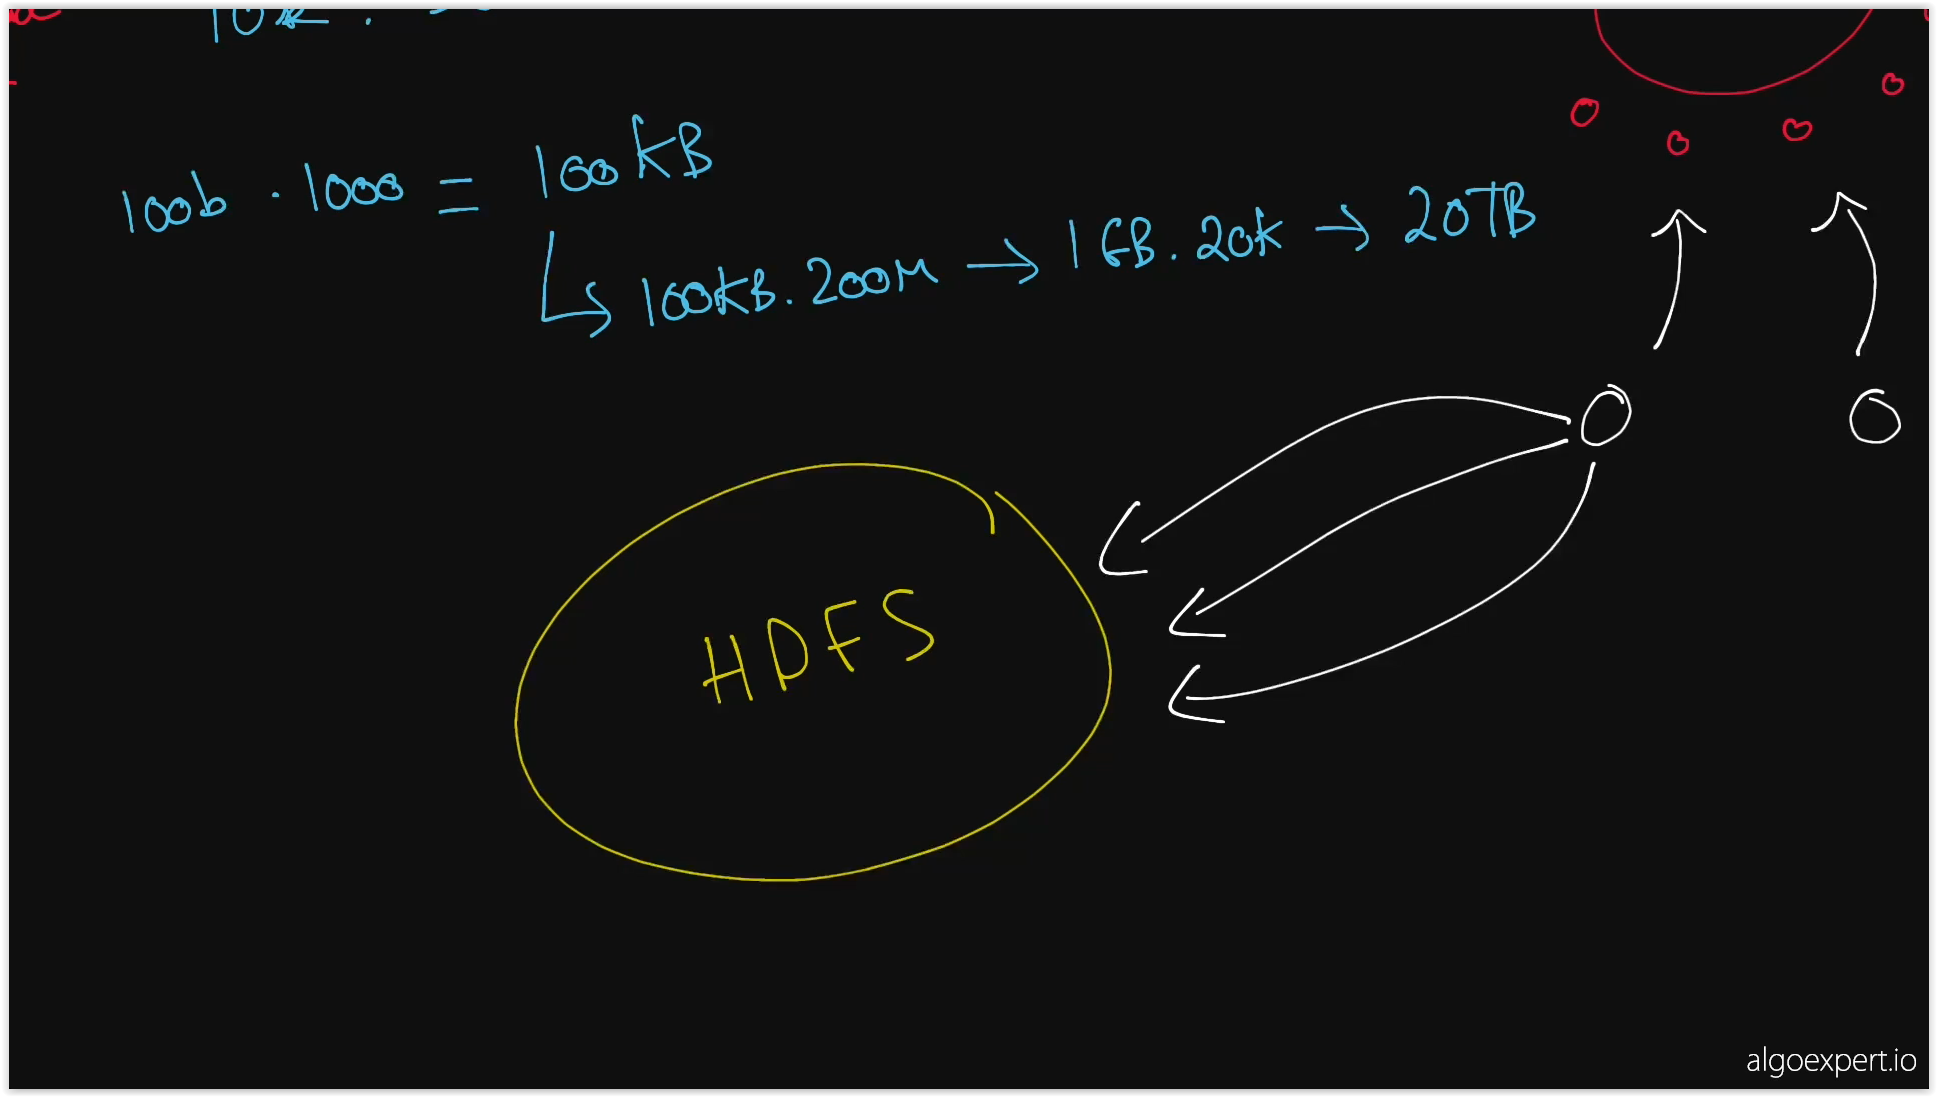 100b · 1000 = 100KB
↳ 100KB · 200M → 1GB · 20K → 20TB
HDFS
algoexpert.io